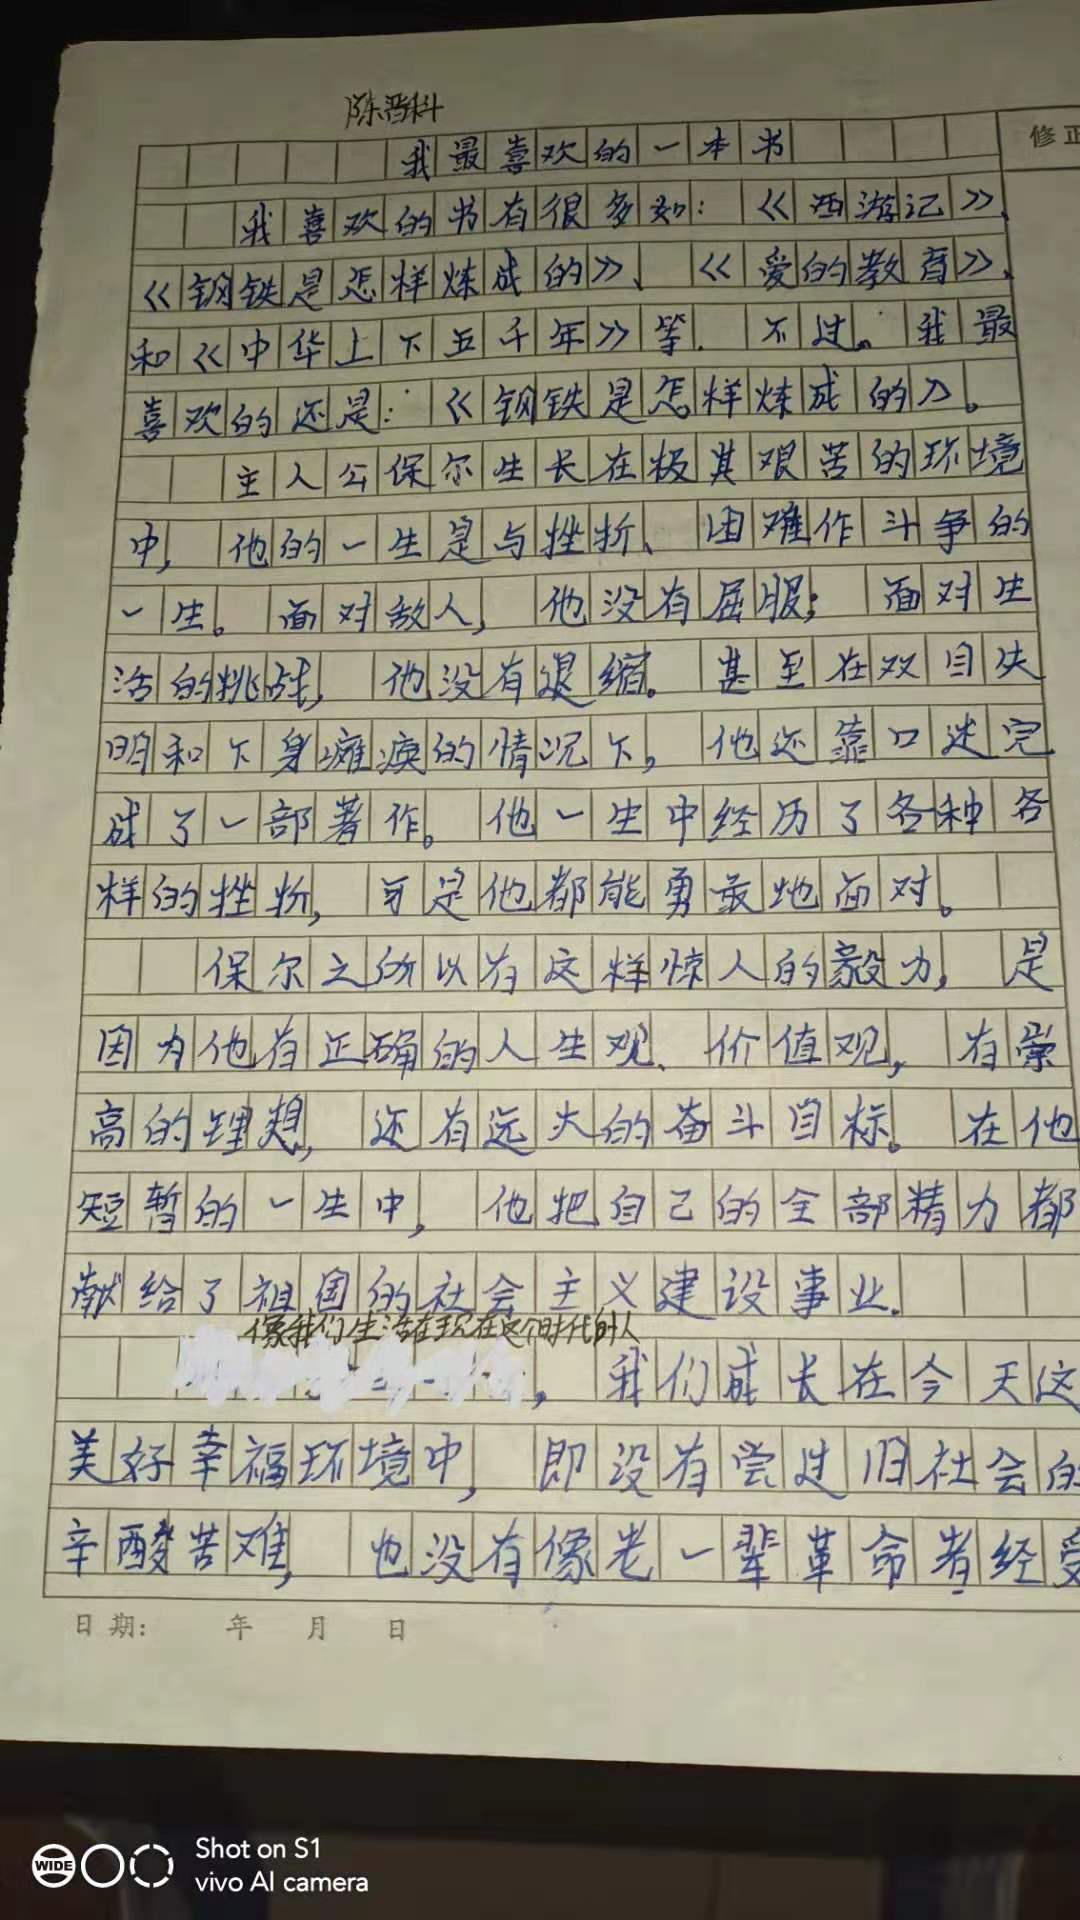 陈晋科
修正
我最喜欢的一本书
我喜欢的书有很多如：《西游记》、
《钢铁是怎样炼成的》、《爱的教育》、
和《中华上下五千年》等．不过。我最
喜欢的还是：《钢铁是怎样炼成的》。
主人公保尔生长在极其艰苦的环境
中，他的一生是与挫折、困难作斗争的
一生。面对敌人，他没有屈服；面对生
活的挑战，他没有退缩。甚至在双目失
明和下身瘫痪的情况下，他还靠口述完
成了一部著作。他一生中经历了各种各
样的挫折，可是他都能勇敢地面对。
保尔之所以有这样惊人的毅力，是
因为他有正确的人生观、价值观，有崇
高的理想，还有远大的奋斗目标。在他
短暂的一生中，他把自己的全部精力都
献给了祖国的社会主义建设事业．
像我们生活在现在这个时代的人
，我们成长在今天这
美好幸福环境中，即没有尝过旧社会的
辛酸苦难，也没有像老一辈革命者经受
日期：　年　月　日
WIDE
Shot on S1
vivo AI camera